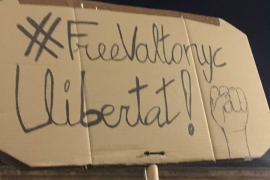 #FreeValtonyc
Llibertat!